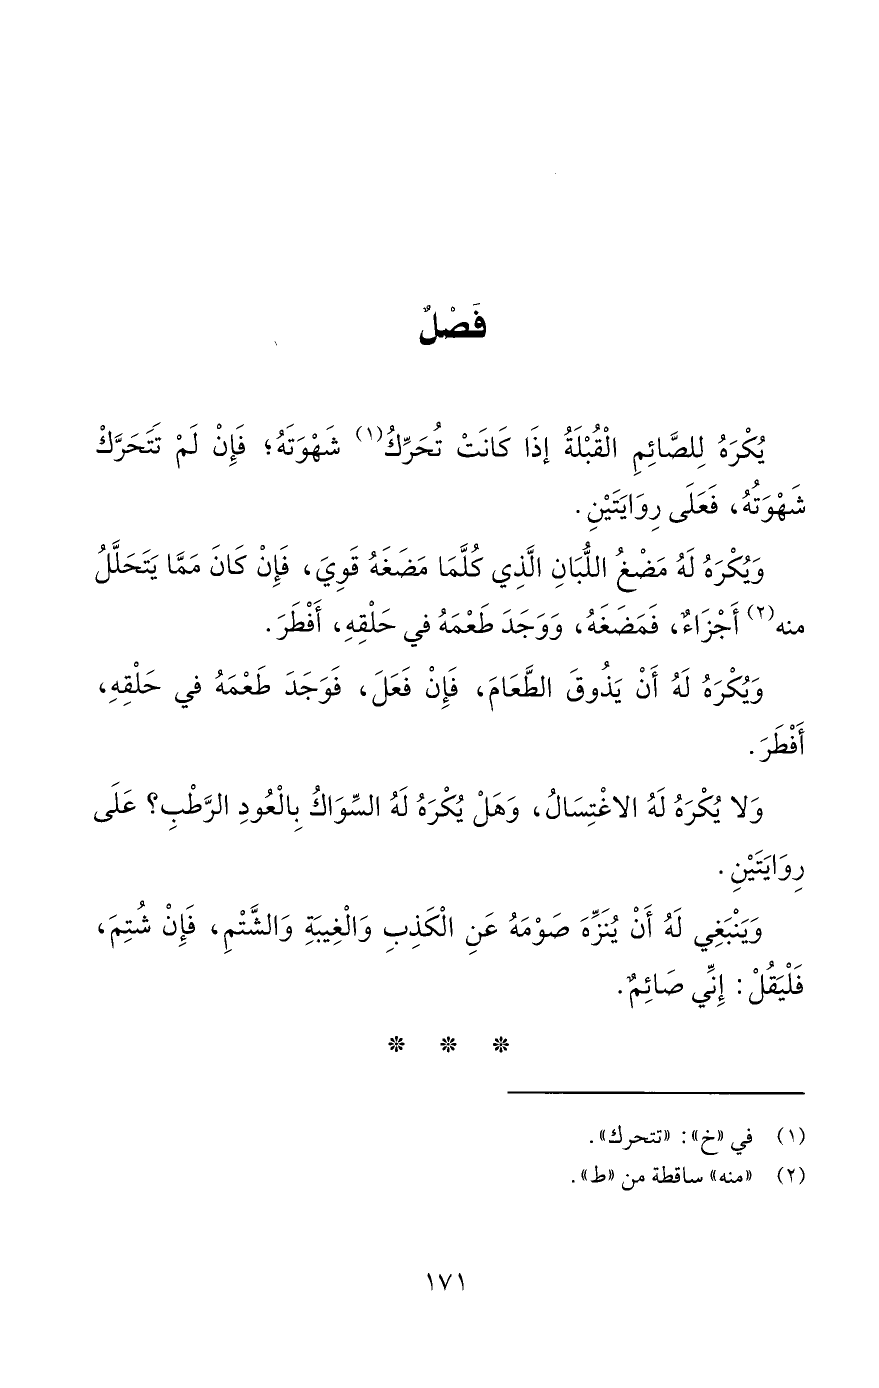 فَصْلٌ
يُكْرَهُ لِلصَّائِمِ الْقُبْلَةُ إذَا كَانَتْ تُحَرِّكُ(١) شَهْوَتَهُ؛ فَإِنْ لَمْ تَتَحَرَّكْ
شَهْوَتُهُ، فَعَلَى رِوَايَتَيْنِ.
وَيُكْرَهُ لَهُ مَضْغُ اللُّبَانِ الَّذِي كُلَّمَا مَضَغَهُ قَوِيَ، فَإِنْ كَانَ مَمَّا يَتَحَلَّلُ
منه(٢) أَجْزَاءٌ، فَمَضَغَهُ، وَوَجَدَ طَعْمَهُ في حَلْقِهِ، أَفْطَرَ.
وَيُكْرَهُ لَهُ أَنْ يَذُوقَ الطَّعَامَ، فَإِنْ فَعَلَ، فَوَجَدَ طَعْمَهُ في حَلْقِهِ،
أَفْطَرَ.
وَلا يُكْرَهُ لَهُ الاغْتِسَالُ، وَهَلْ يُكْرَهُ لَهُ السِّوَاكُ بِالْعُودِ الرَّطْبِ؟ عَلَى
رِوَايَتَيْنِ.
وَيَنْبَغِي لَهُ أَنْ يُنَزِّهَ صَوْمَهُ عَنِ الْكَذِبِ وَالْغِيبَةِ وَالشَّتْمِ، فَإِنْ شُتِمَ،
فَلْيَقُلْ: إِنِّي صَائِمٌ.
* * *
(١) في «خ»: «تتحرك».
(٢) «منه» ساقطة من «ط».
١٧١